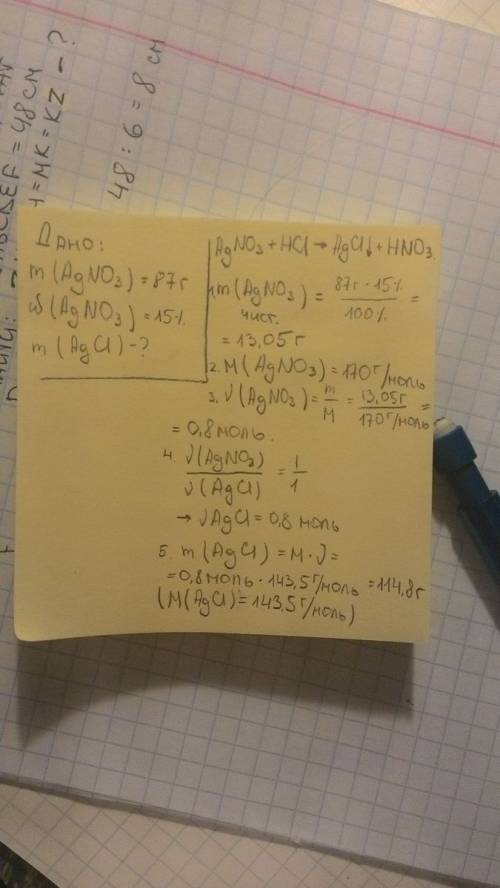 Дано:
m (AgNO3) = 87г
ω (AgNO3) = 15%
m (AgCl) - ?
AgNO3 + HCl → AgCl↓ + HNO3.
1. m(AgNO3) чист. = 87г · 15% / 100% =
= 13,05г
2. M(AgNO3) = 170 г/моль
3. √(AgNO3) = m/M = 13,05г / 170 г/моль =
= 0,8 моль.
4. √(AgNO3) / √(AgCl) = 1/1
→ √AgCl = 0,8 моль
5. m (AgCl) = M · √ =
= 0,8 моль · 143,5 г/моль = 114,8г
(M(AgCl) = 143,5 г/моль)
48 : 6 = 8 см
= MK = KZ - ?
= 48 см